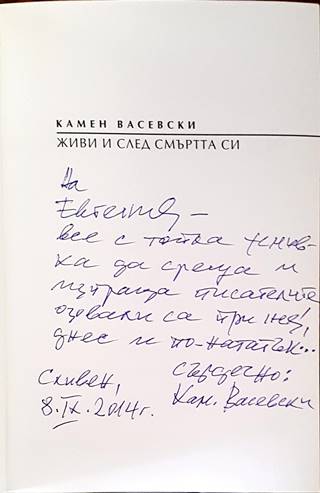 КАМЕН ВАСЕВСКИ
ЖИВИ И СЛЕД СМЪРТТА СИ
На
Евгения –
все с топка усмив-
ка да среща и
изпраща писателите
озовали са при нея,
днес и по-нататък...
Сърдечно:
Сливен,
8.IX.2014г.
Кам. Васевски